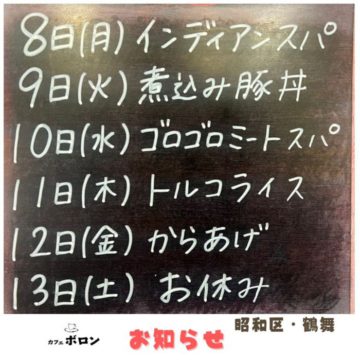 8日(月) インディアンスパ
9日(火) 煮込み豚丼
10日(水) ゴロゴロミートスパ
11日(木) トルコライス
12日(金) からあげ
13日(土) お休み
昭和区・鶴舞
カフェ ボロン
お知らせ